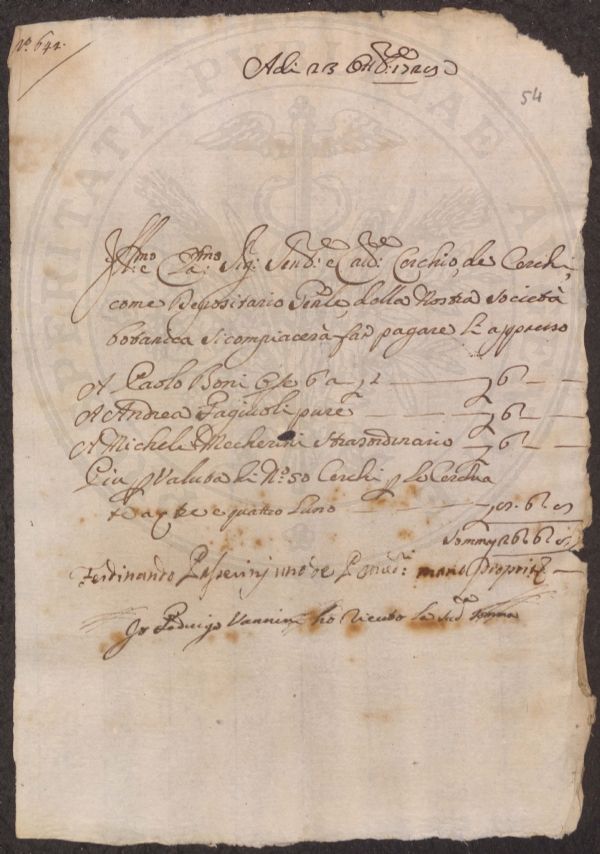 N.º 644.
Adi 23 Ott.re 1729
54
Ill.mo e Cla.mo Sig.r Send.e e Cav.re Cerchio de Cerchi,
come Depositario Gen.le della Nostra Società
botanica si compiacerà far pagare li appresso
A Paolo Boni Opre 6 a £ 1 — £ 6 —
A Andrea Fagiuoli pure — £ 6 —
A Michele Mecherini Straordinario — £ 6 —
E in Valuta li N.º 50 Cerchi p
tre e quattro l'uno
Somma £
Ferdinando Passerini uno de Provved.i mano propria
Io Rodrigo Vannini ho riceuto la sud.a somma